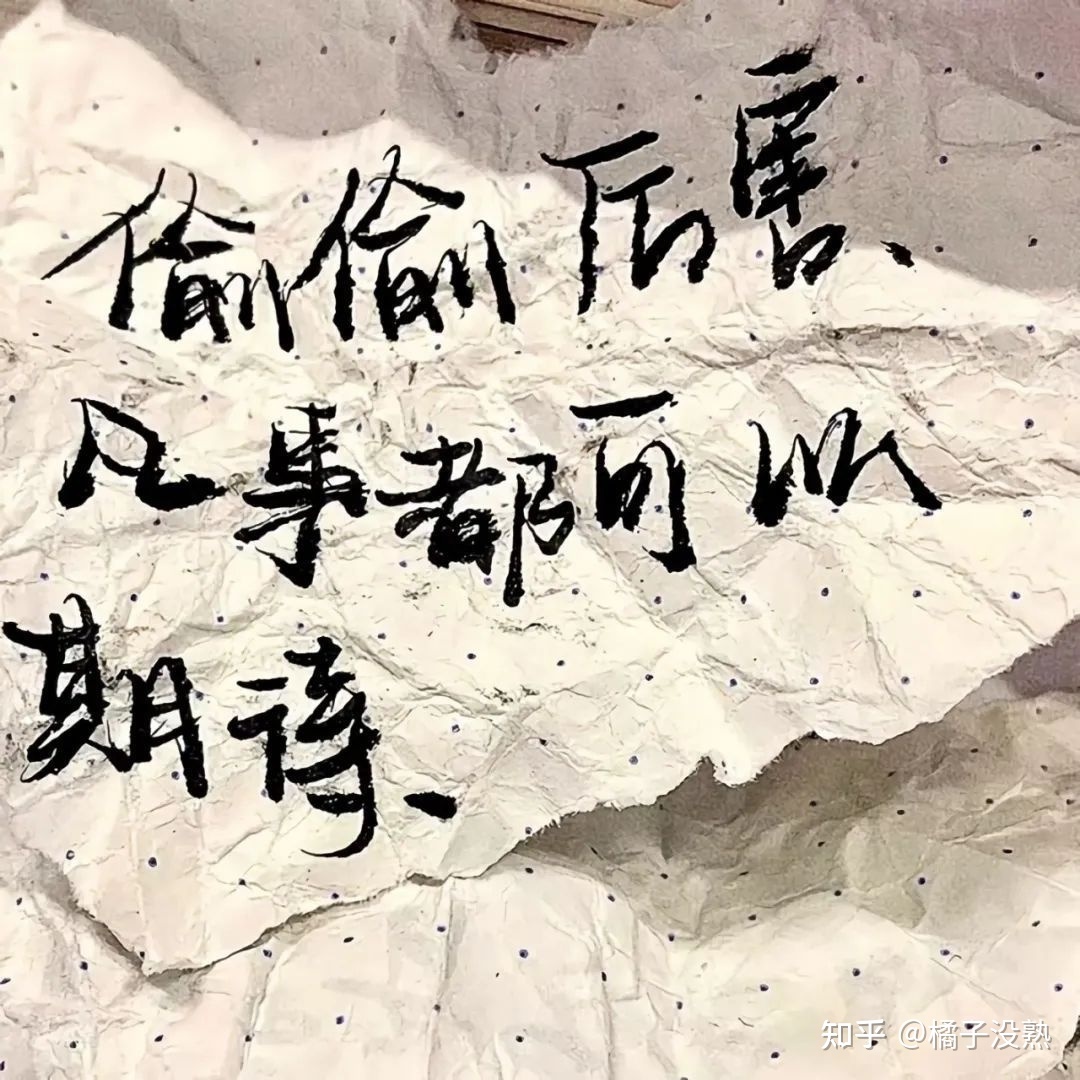 偷偷厉害、
凡事都可以
期待、
知乎 @橘子没熟